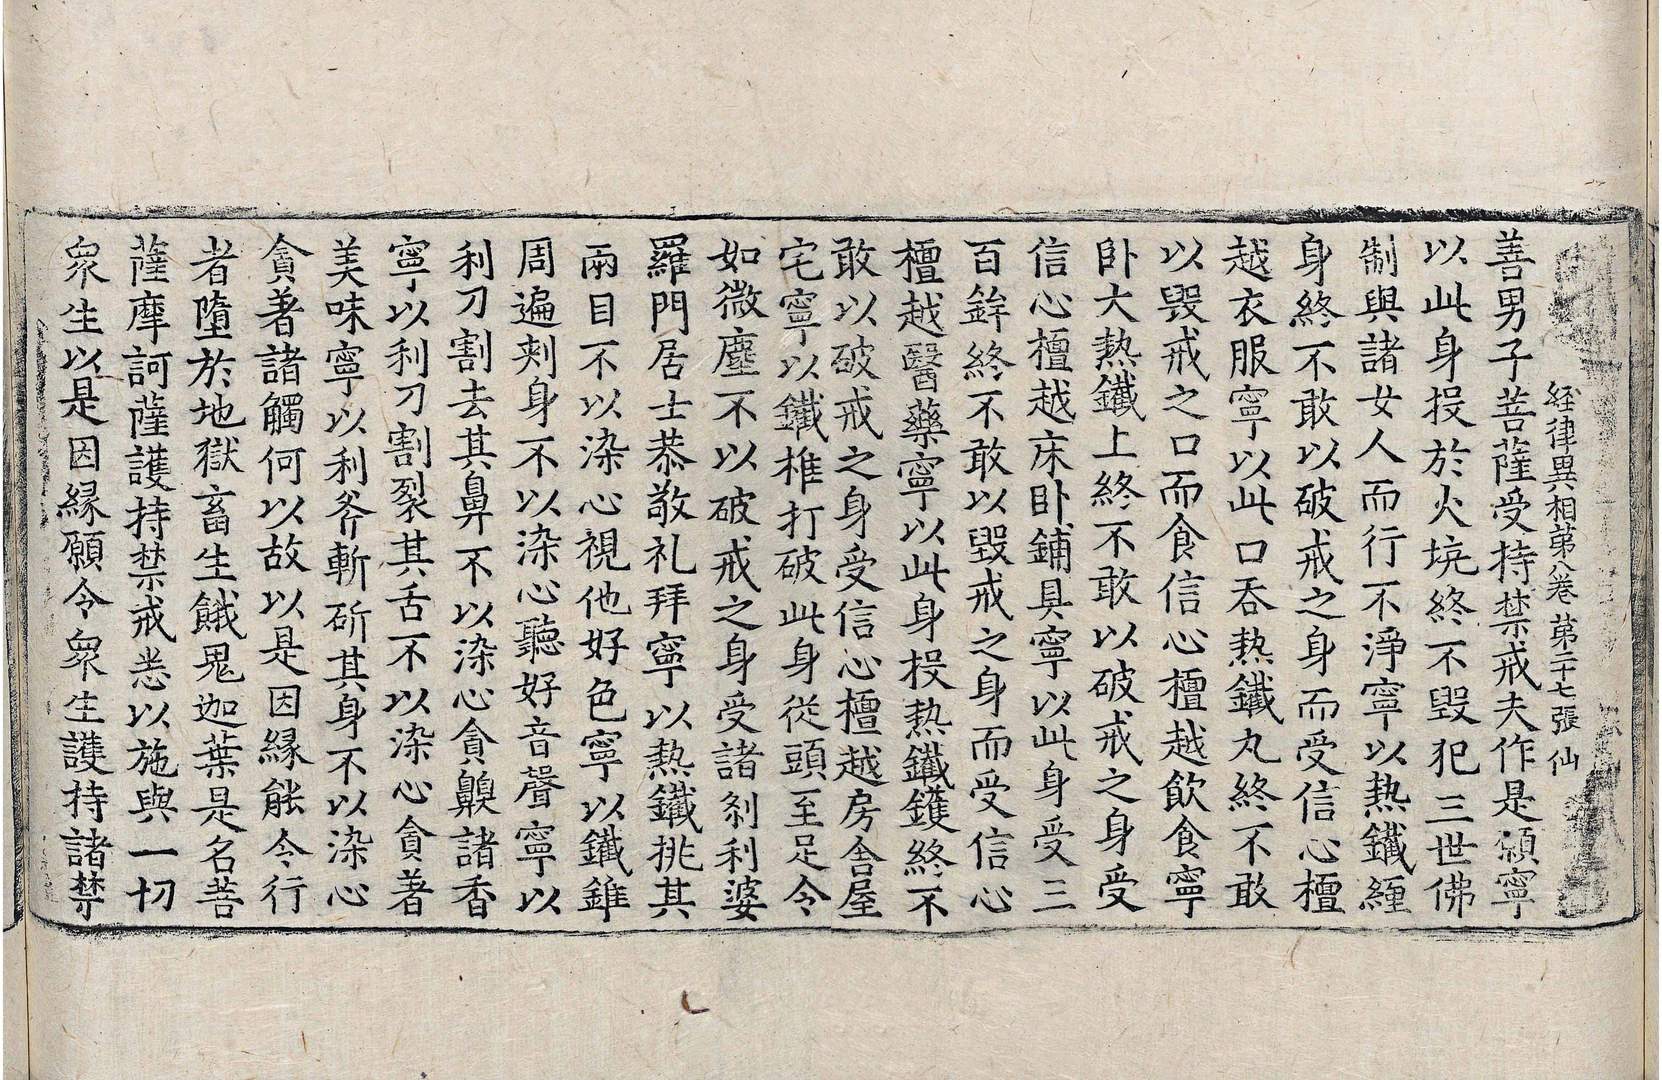 経律異相第八卷 第二十七張 仙
善男子菩薩受持禁戒夫作是願寧
以此身投於火坑終不毀犯三世佛
制與諸女人而行不淨寧以熱鐵纏
身終不敢以破戒之身而受信心檀
越衣服寧以此口吞熱鐵丸終不敢
以毀戒之口而食信心檀越飲食寧
卧大熱鐵上終不敢以破戒之身受
信心檀越床卧鋪具寧以此身受三
百鉾終不敢以毀戒之身而受信心
檀越醫藥寧以此身投熱鐵鑊終不
敢以破戒之身受信心檀越房舍屋
宅寧以鐵椎打破此身從頭至足令
如微塵不以破戒之身受諸剎利婆
羅門居士恭敬礼拜寧以熱鐵挑其
兩目不以染心視他好色寧以鐵錐
周遍刾身不以染心聽好音聲寧以
利刀割去其鼻不以染心貪齅諸香
寧以利刀割裂其舌不以染心貪著
美味寧以利斧斬斫其身不以染心
貪著諸觸何以故以是因縁能令行
者墮於地獄畜生餓鬼迦葉是名菩
薩摩訶薩護持禁戒悉以施與一切
衆生以是因縁願令衆生護持諸禁